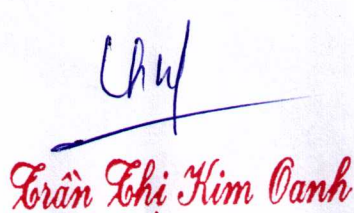 Trần Thi Kim Oanh